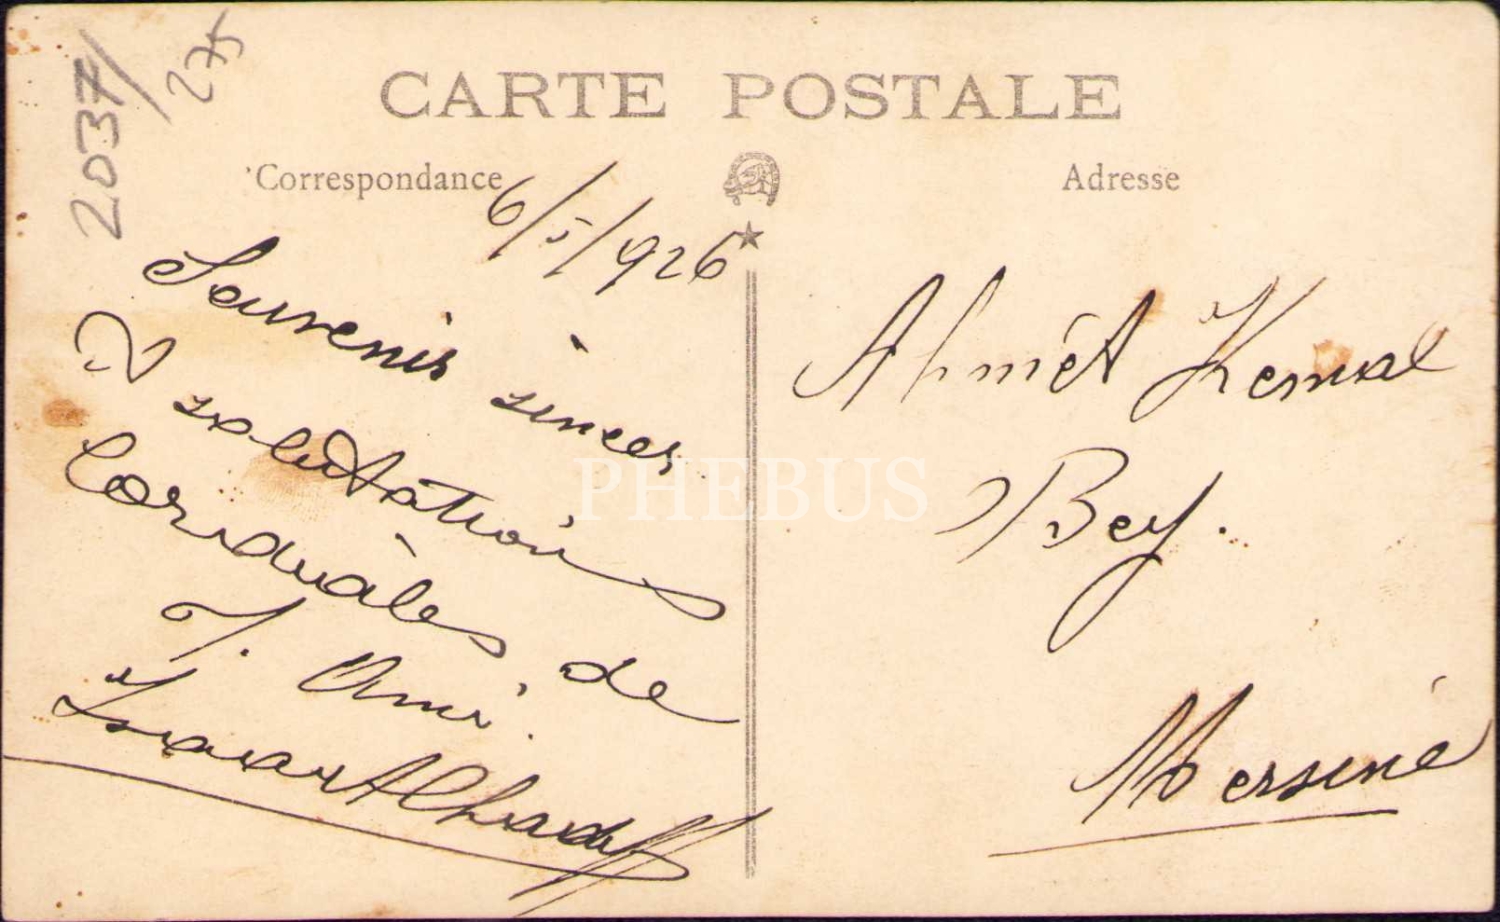 2037/
275
CARTE POSTALE
Correspondance
Adresse
6/5/926
Souvenir sincer
& salutations
Cordiales de
Ami.
Alhadeff
Ahmét Kemal
Bey.
Mersine
PHEBUS